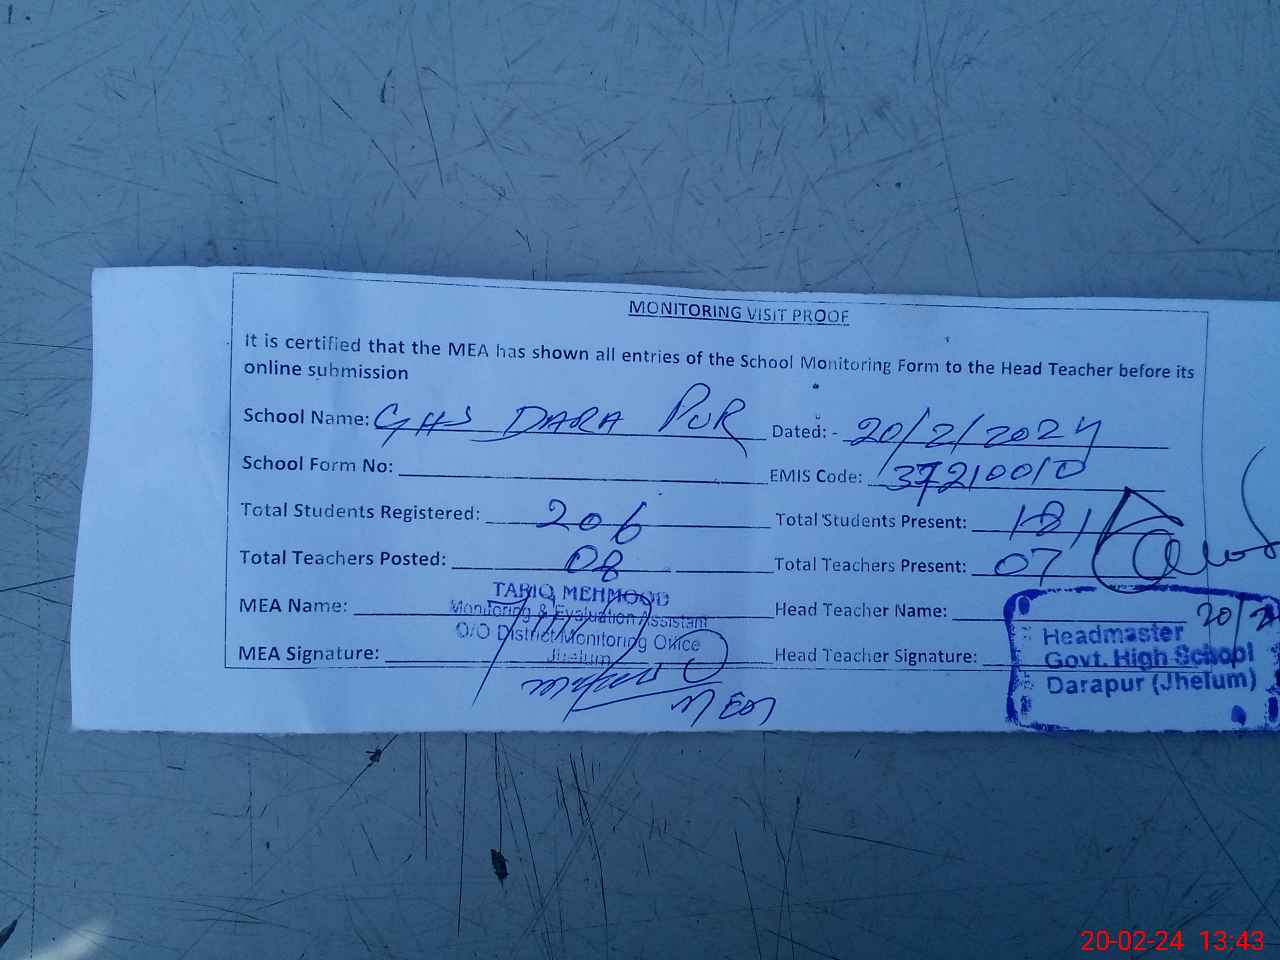 MONITORING VISIT PROOF
It is certified that the MEA has shown all entries of the School Monitoring Form to the Head Teacher before its
online submission
School Name: GHS DARA PUR Dated: - 20/2/2024
School Form No: EMIS Code: 37210010
Total Students Registered: 206 Total Students Present: 181
Total Teachers Posted: 08 Total Teachers Present: 07
MEA Name: TARIQ MEHMOOD Head Teacher Name:
Monitoring & Evaluation Assistant
O/O District Monitoring Office
Jhelum
MEA Signature: Head Teacher Signature:
20/2
Headmaster
Govt. High School
Darapur (Jhelum)
20-02-24 13:43